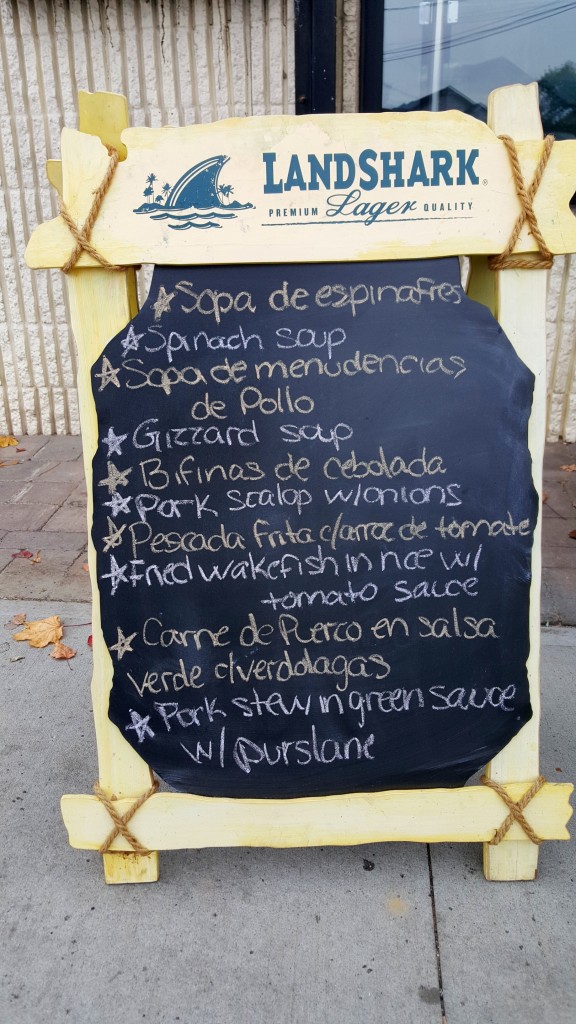 LANDSHARK
PREMIUM Lager QUALITY
Sopa de espinafres
Spinach soup
Sopa de menudencias
de Pollo
Gizzard soup
Bifinas de cebolada
Pork scalop w/onions
Pescada frita c/arroz de tomate
Fried wakefish in rice w/
tomato sauce
Carne de Puerco en salsa
verde c/verdolagas
Pork stew in green sauce
w/ purslane